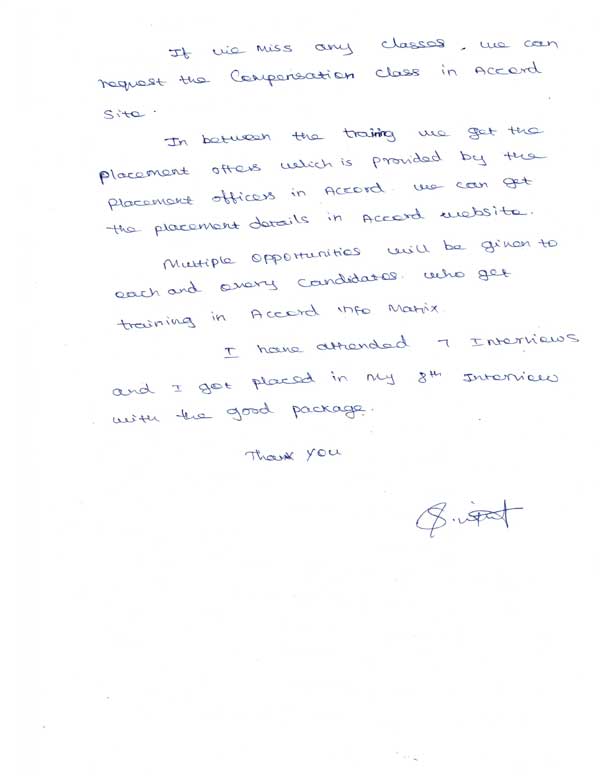 If we miss any classes, we can
request the Compensation class in Accord
Site.
In between the training we get the
placement offers which is provided by the
placement officers in Accord. we can get
the placement details in Accord website.
Multiple opportunities will be given to
each and every candidates. who get
training in Accord Info Matrix.
I have attended 7 Interviews
and I got placed in my 8th Interview
with the good package.
Thank you